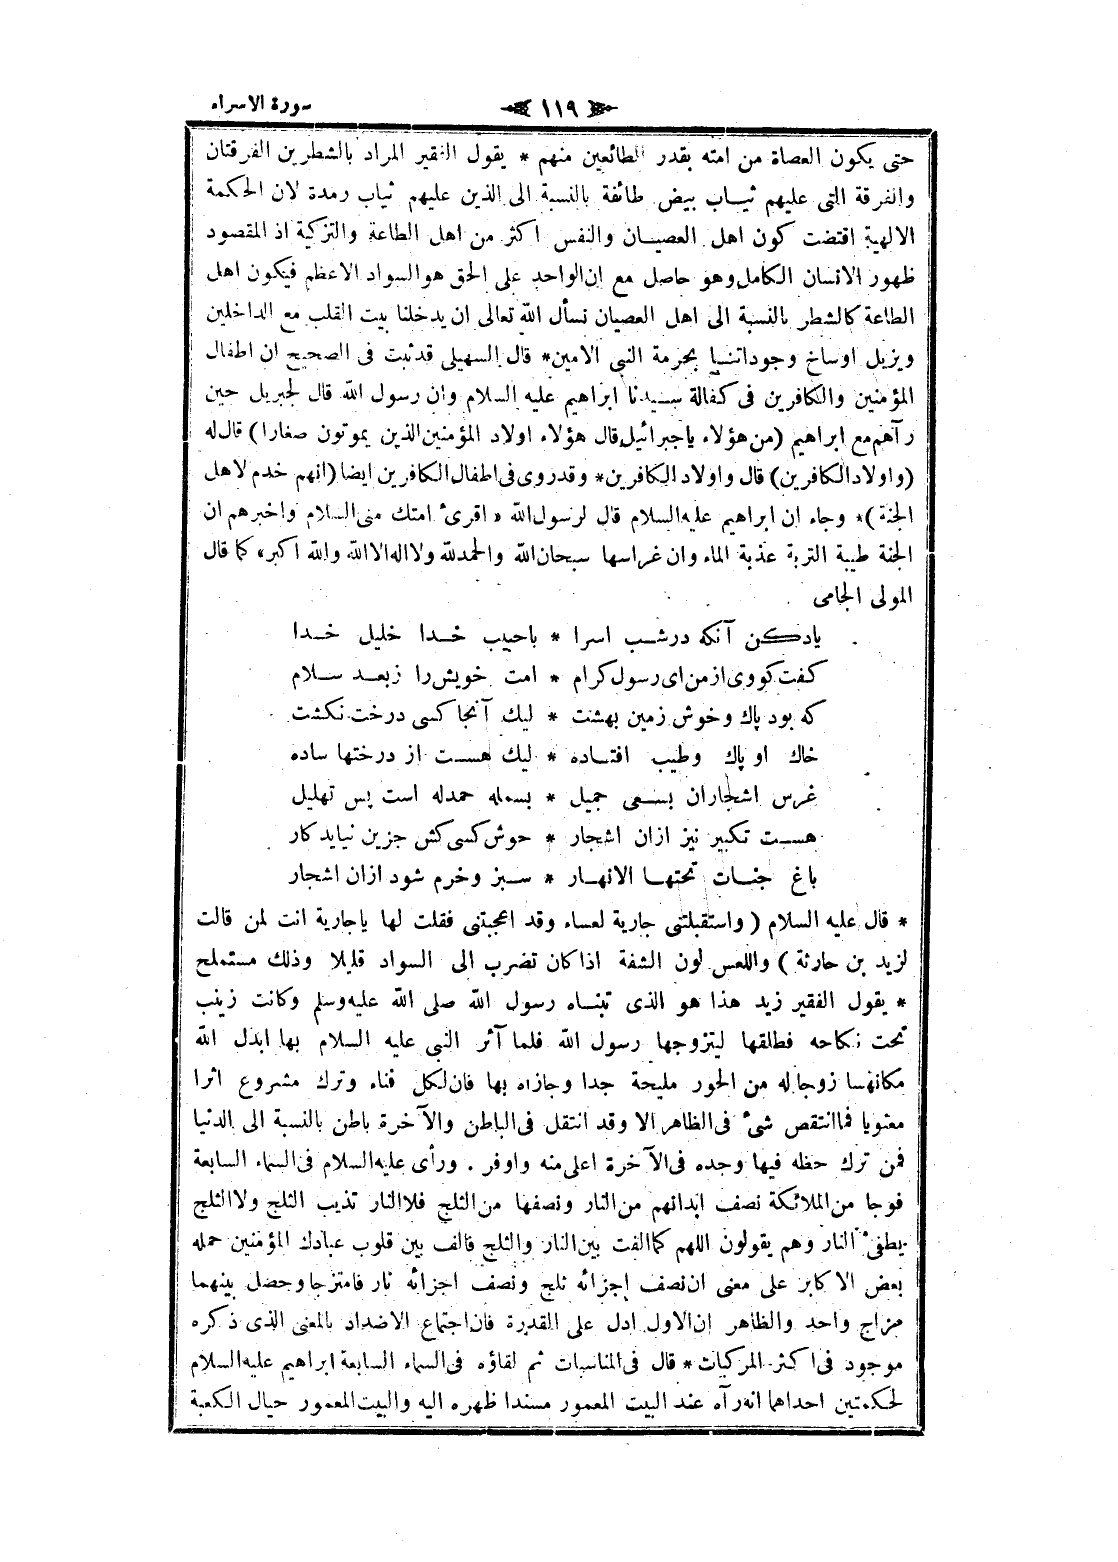 سورة الاسراء
١١٩
حتى يكون العصاة من امته بقدر الطائعين منهم * يقول الفقير المراد بالشطرين الفرقتان
والفرقة التى عليهم ثياب بيض طائفة بالنسبة الى الذين عليهم ثياب رمدة لان الحكمة
الالهية اقتضت كون اهل العصيان والنفس اكثر من اهل الطاعة والتزكية اذ المقصود
ظهور الانسان الكامل وهو حاصل مع ان الواحد على الحق هو السواد الاعظم فيكون اهل
الطاعة كالشطر بالنسبة الى اهل العصيان نسأل الله تعالى ان يدخلنا بيت القلب مع الداخلين
ويزيل اوساخ وجوداتنا بحرمة النبى الامين * قال السهيلى قد ثبت فى الصحيح ان اطفال
المؤمنين والكافرين فى كفالة سيدنا ابراهيم عليه السلام وان رسول الله قال لجبريل حين
رآهم مع ابراهيم (من هؤلاء ياجبرائيل قال هؤلاء اولاد المؤمنين الذين يموتون صغارا) قال له
(واولاد الكافرين) قال واولاد الكافرين * وقد روى فى اطفال الكافرين ايضا (انهم خدم لاهل
الجنة) * وجاء ان ابراهيم عليه السلام قال لرسول الله « اقرئ امتك منى السلام واخبرهم ان
الجنة طيبة التربة عذبة الماء وان غراسها سبحان الله والحمدلله ولااله الاالله والله اكبر » كما قال
المولى الجامى
يادكن آنكه درشب اسرا * باحبيب خدا خليل خدا
كفت كووى ازمن اى رسول كرام * امت خويش را زبعد سلام
كه بود پاك وخوش زمين بهشت * ليك آنجا كسى درخت نكشت
خاك او پاك وطيب افتاده * ليك هست از درختها ساده
غرس اشجاران بسعى جميل * بسمله حمدله است پس تهليل
هست تكبير نيز ازان اشجار * خوش كسى كش جزين نيايد كار
باغ جنات تحتها الانهار * سبز وخرم شود ازان اشجار
* قال عليه السلام ( واستقبلتنى جارية لعساء وقد اعجبتنى فقلت لها ياجارية انت لمن قالت
لزيد بن حارثة ) واللعس لون الشفة اذا كان تضرب الى السواد قليلا وذلك مستملح
* يقول الفقير زيد هذا هو الذى تبناه رسول الله صلى الله عليه وسلم وكانت زينب
تحت نكاحه فطلقها ليتزوجها رسول الله فلما آثر النبى عليه السلام بها ابدل الله
مكانها زوجا له من الحور مليحة جدا وجازاه بها فان لكل فناء وترك مشروع اثرا
معنويا فما انتقص شئ فى الظاهر الا وقد انتقل فى الباطن والآخرة باطن بالنسبة الى الدنيا
فمن ترك حظه فيها وجده فى الآخرة اعلى منه واوفر . ورأى عليه السلام فى السماء السابعة
فوجا من الملائكة نصف ابدانهم من النار ونصفها من الثلج فلا النار تذيب الثلج ولا الثلج
يطفئ النار وهم يقولون اللهم كما الفت بين النار والثلج فالف بين قلوب عبادك المؤمنين حمله
بعض الاكابر على معنى ان نصف اجزائه ثلج ونصف اجزائه نار فامتزجا وحصل بينهما
مزاج واحد والظاهر ان الاول ادل على القدرة فان اجتماع الاضداد بالمعنى الذى ذكره
موجود فى اكثر المركبات * قال فى المناسبات ثم لقاؤه فى السماء السابعة ابراهيم عليه السلام
لحكمتين احداهما انه رآه عند البيت المعمور مسندا ظهره اليه والبيت المعمور حيال الكعبة